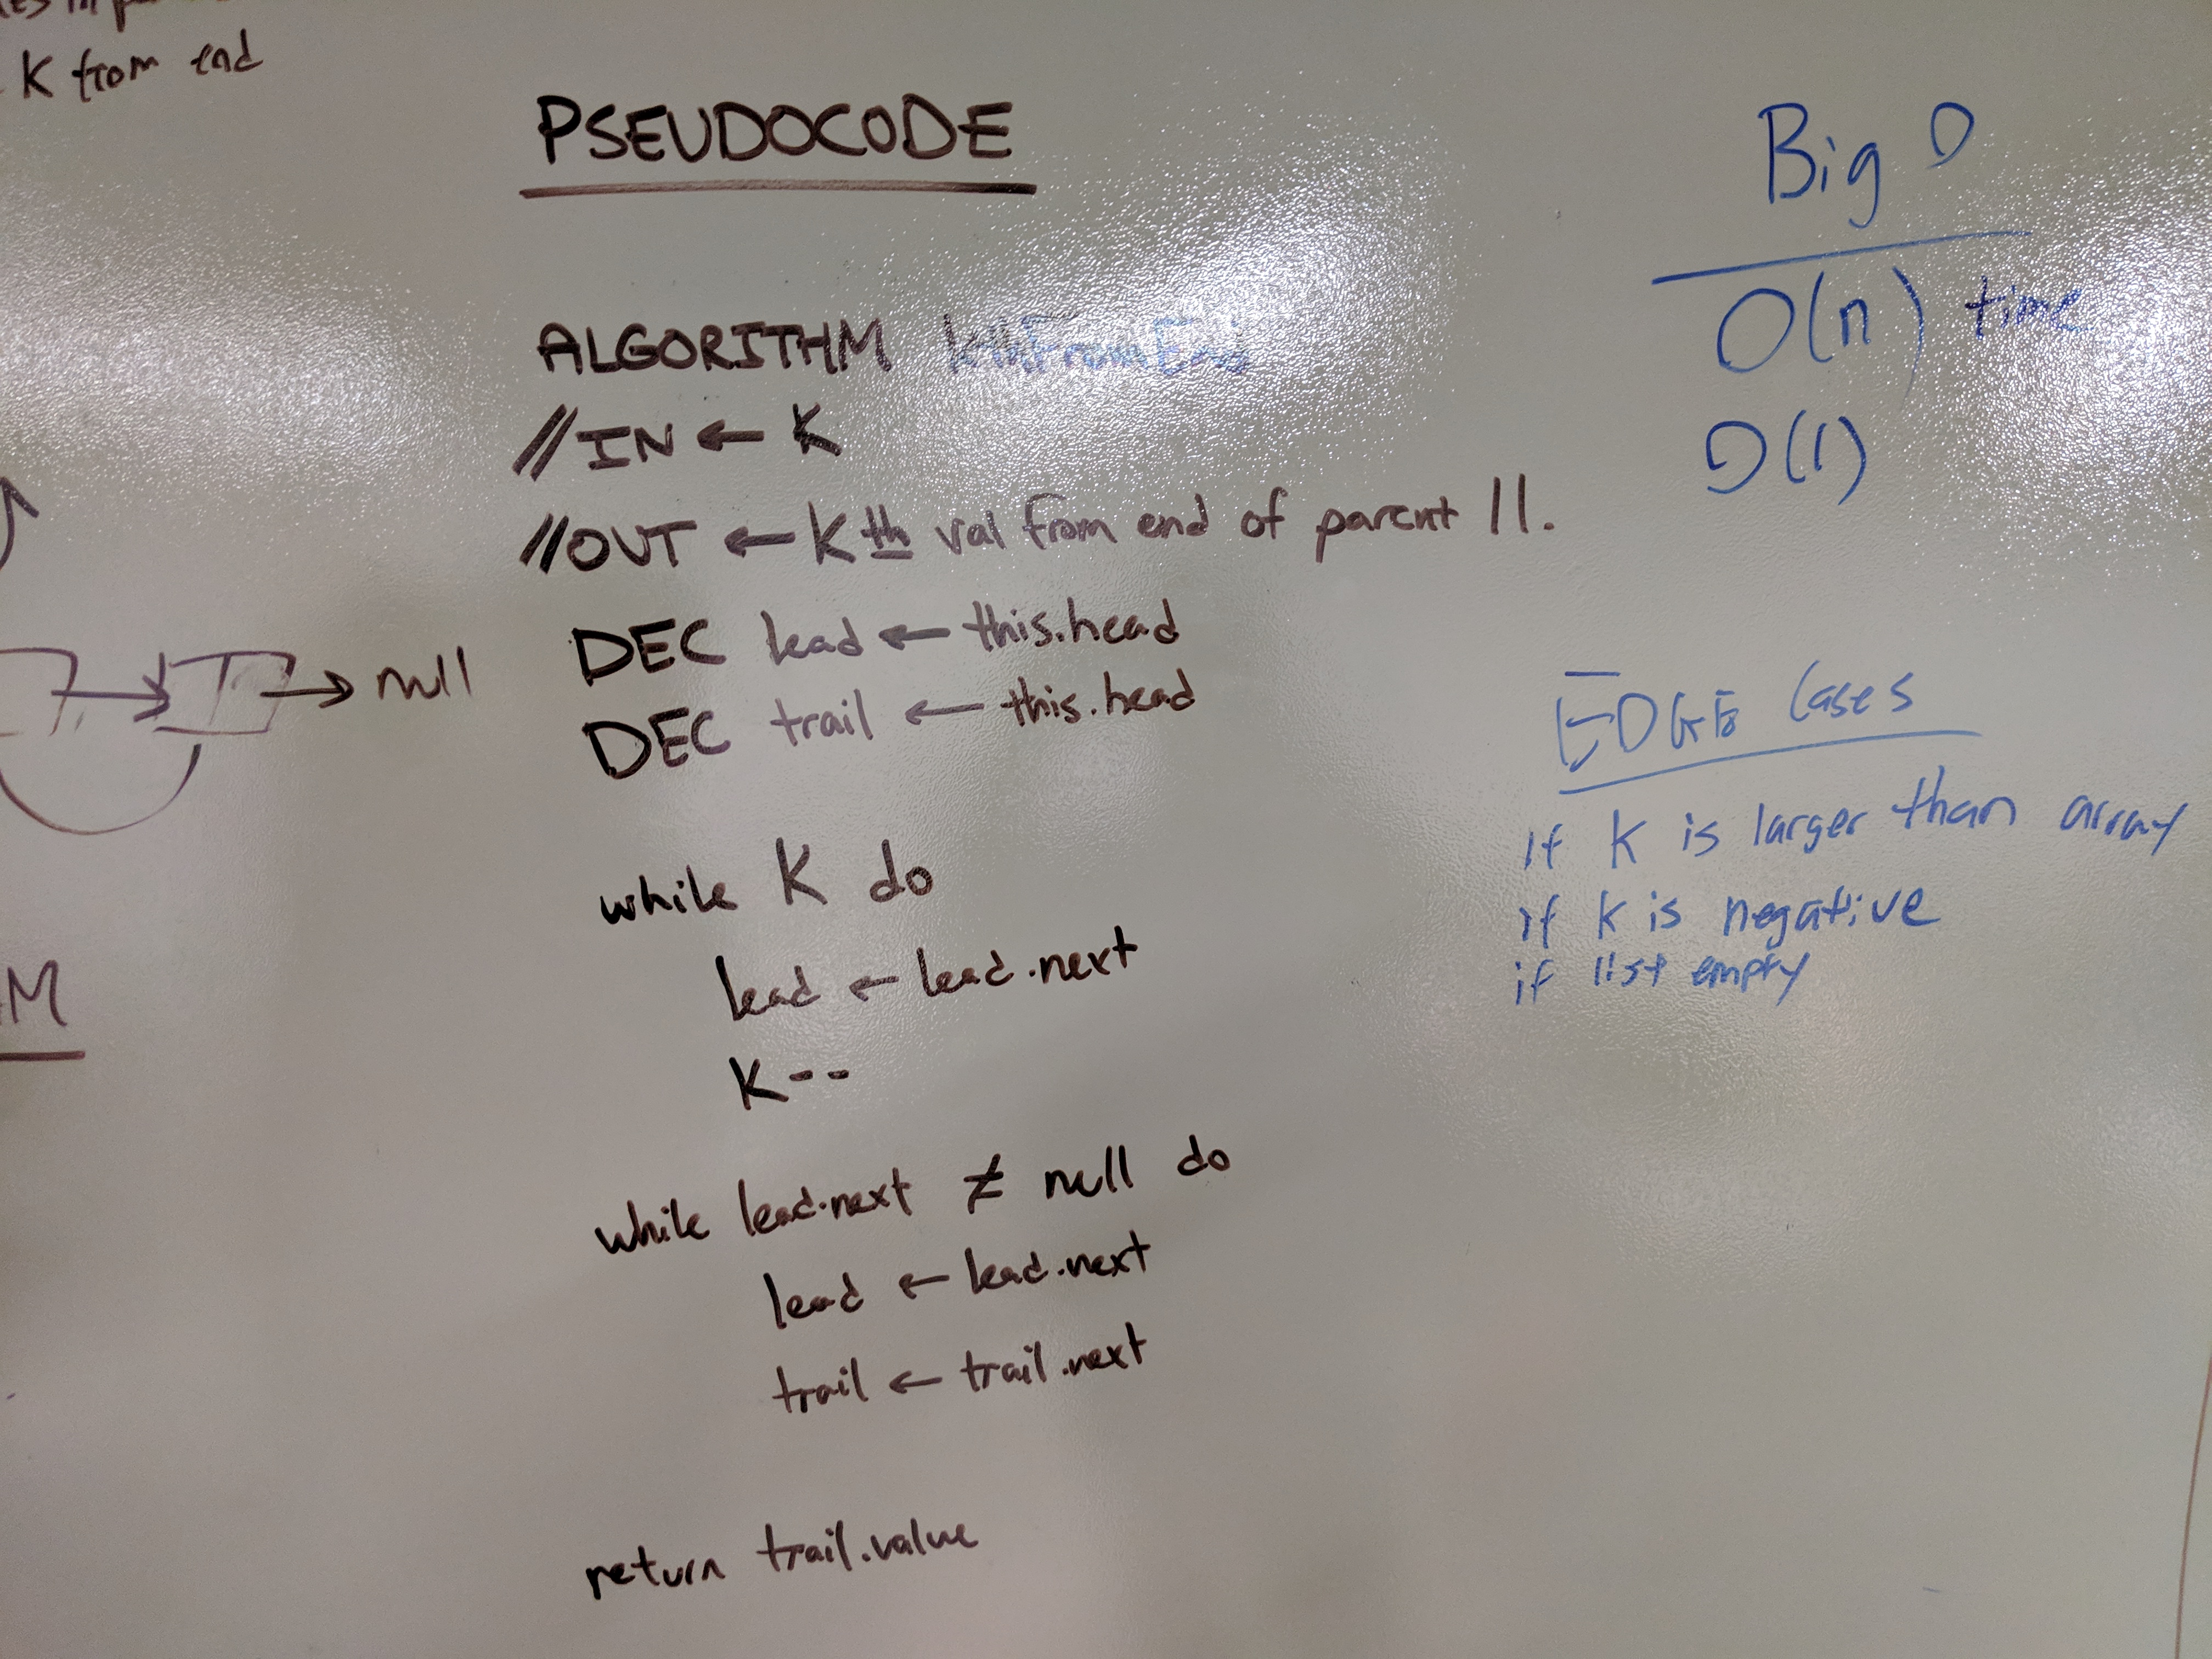 K from end
PSEUDOCODE
ALGORITHM kthFromEnd
//IN ← K
//OUT ← Kth val from end of parent ll.
DEC lead ← this.head
DEC trail ← this.head
while K do
lead ← lead.next
K--
while lead.next ≠ null do
lead ← lead.next
trail ← trail.next
return trail.value
→ null
M
Big O
O(n) time
O(1)
EDGE Cases
if K is larger than array
if K is negative
if list empty